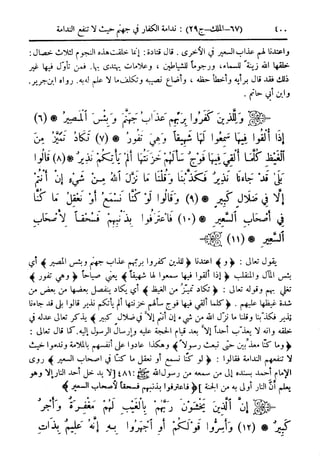 ٤٠٠ (٦٧-الملك-ج٢٩) : ندامة الكفار في جهنم حيث لا تنفع الندامة
واعتدنا لهم عذاب السعير في الأخرى. قال قتادة: إنما خلقت هذه النجوم لثلاث خصال:
خلقها الله زينة للسماء، ورجوماً للشياطين، وعلامات يهتدى بها. فمن تأول فيها غير
ذلك فقد قال برأيه وأخطأ حظه، وأضاع نصيبه وتكلف ما لا علم له به. رواه ابن جرير.
وابن أبي حاتم.
وَلِلَّذِينَ كَفَرُوا بِرَبِّهِمْ عَذَابُ جَهَنَّمَ وَبِئْسَ الْمَصِيرُ * (٦)
إِذَا أُلْقُوا فِيهَا سَمِعُوا لَهَا شَهِيقًا وَهِيَ تَفُورُ * (٧) تَكَادُ تَمَيَّزُ مِنَ
الْغَيْظِ كُلَّمَا أُلْقِيَ فِيهَا فَوْجٌ سَأَلَهُمْ خَزَنَتُهَا أَلَمْ يَأْتِكُمْ نَذِيرٌ * (٨) قَالُوا
بَلَى قَدْ جَاءَنَا نَذِيرٌ فَكَذَّبْنَا وَقُلْنَا مَا نَزَّلَ اللَّهُ مِنْ شَيْءٍ إِنْ أَنْتُمْ
إِلَّا فِي ضَلَالٍ كَبِيرٍ * (٩) وَقَالُوا لَوْ كُنَّا نَسْمَعُ أَوْ نَعْقِلُ مَا كُنَّا
فِي أَصْحَابِ السَّعِيرِ * (١٠) فَاعْتَرَفُوا بِذَنْبِهِمْ فَسُحْقًا لِأَصْحَابِ
السَّعِيرِ * (١١)
يقول تعالى: * و * اعتدنا * للذين كفروا بربهم عذاب جهنم وبئس المصير * أي
بئس المآل والمنقلب * إذا ألقوا فيها سمعوا لها شهيقاً * يعني صياحاً * وهي تفور *
تغلي بهم وقوله تعالى: * تكاد تميز من الغيظ * أي يكاد ينفصل بعضها من بعض من
شدة غيظها عليهم. * كلما ألقي فيها فوج سألهم خزنتها ألم يأتكم نذير قالوا بلى قد جاءنا
نذير فكذبنا وقلنا ما نزل الله من شيء إن أنتم إلا في ضلال كبير * يذكر تعالى عدله في
خلقه وانه لا يعذب أحداً إلا بعد قيام الحجة عليه وإرسال الرسول إليه. كما قال تعالى:
* وما كنا معذبين حتى نبعث رسولا * وهكذا عادوا على أنفسهم بالملامة وندموا حيث
لا تنفعهم الندامة فقالوا: * لو كنا نسمع أو نعقل ما كنا في اصحاب السعير * روى
الإمام أحمد بسنده إلى من سمعه من رسول الله ﷺ: ٤٨١ [لا يدخل أحد النار إلا وهو
يعلم أن النار أولى به من الجنة] * فاعترفوا بذنبهم فسحقاً لأصحاب السعير *
إِنَّ الَّذِينَ يَخْشَوْنَ رَبَّهُمْ بِالْغَيْبِ لَهُمْ مَغْفِرَةٌ وَأَجْرٌ
كَبِيرٌ * (١٢) وَأَسِرُّوا قَوْلَكُمْ أَوِ اجْهَرُوا بِهِ إِنَّهُ عَلِيمٌ بِذَاتِ